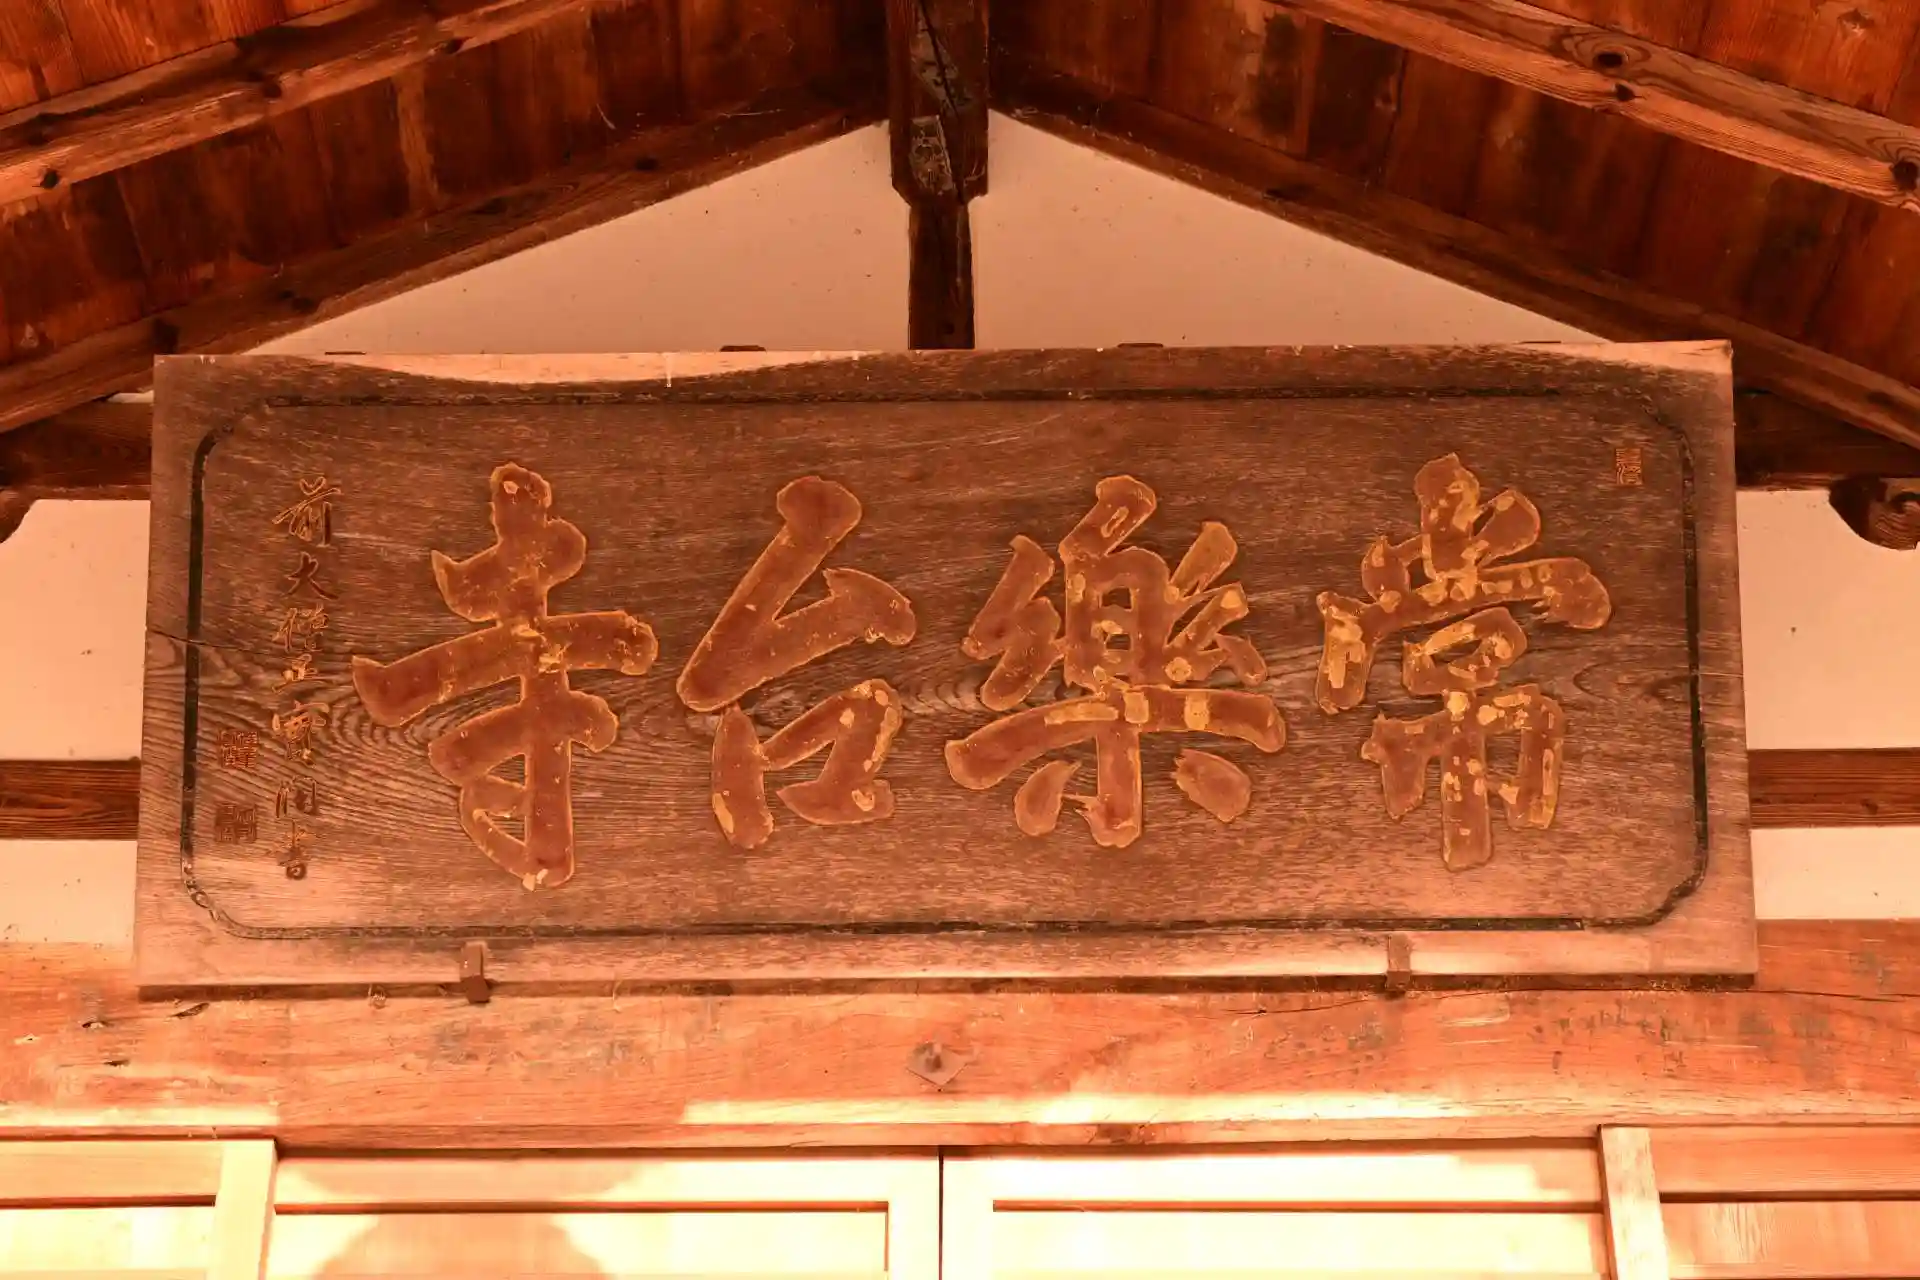 常樂台寺
前大僧正實潤書